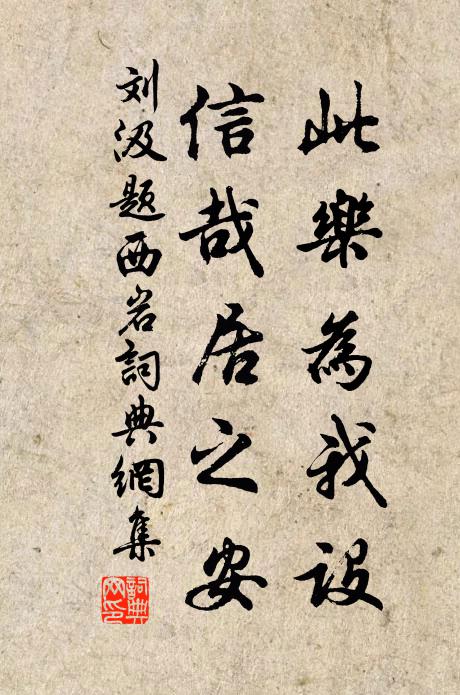 此樂為我設
信哉居之安
刘汲题西岩詞典網集
詞典網印